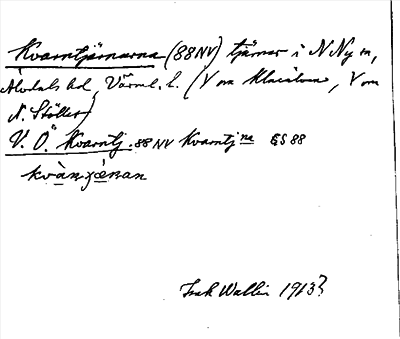 Kvarntjärnarna (88NV) tjärnar i N Ny sn,
Älvdals hd, Värml. l. (V om Klarälven, V om
N. Stöllet)
V. Ö. Kvarntj. 88 NV Kvarntjne GS 88
kvà̱nɟæ̀nan
Isak Wallin 1913?